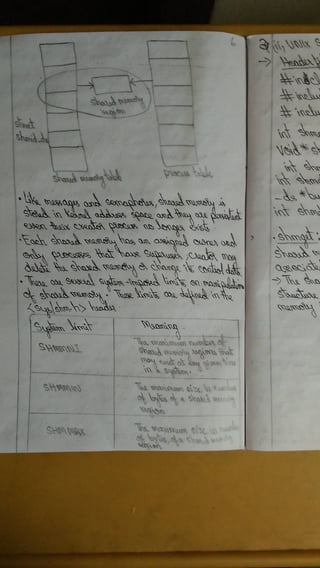 6
shared memory
region
struct
shmid_ds
shared memory table
process table
• Like messages and semaphores, shared memory is
stored in kernel address space and they are persistent
even their creator process no longer exists
• Each shared memory has an assigned owner and
only processes that have superuser, creator may
delete the shared memory or change its control data.
• There are several system-imposed limits on manipulation
of shared memory. These limits are defined in the
<sys/shm.h> header
System limit Meaning
SHMMNI The maximum number of
shared memory regions that
may exist at any given time
in a system.
SHMMIN The minimum size in number
of bytes of a shared memory
region
SHMMAX The maximum size in number
of bytes, of a shared memory
region
UNIX
→ Header
# include
# inclu
# inclu
int shm
void *sh
int sh
int shm
int shm
• shmget:
shared m
associat
→ The sha
structure
memory